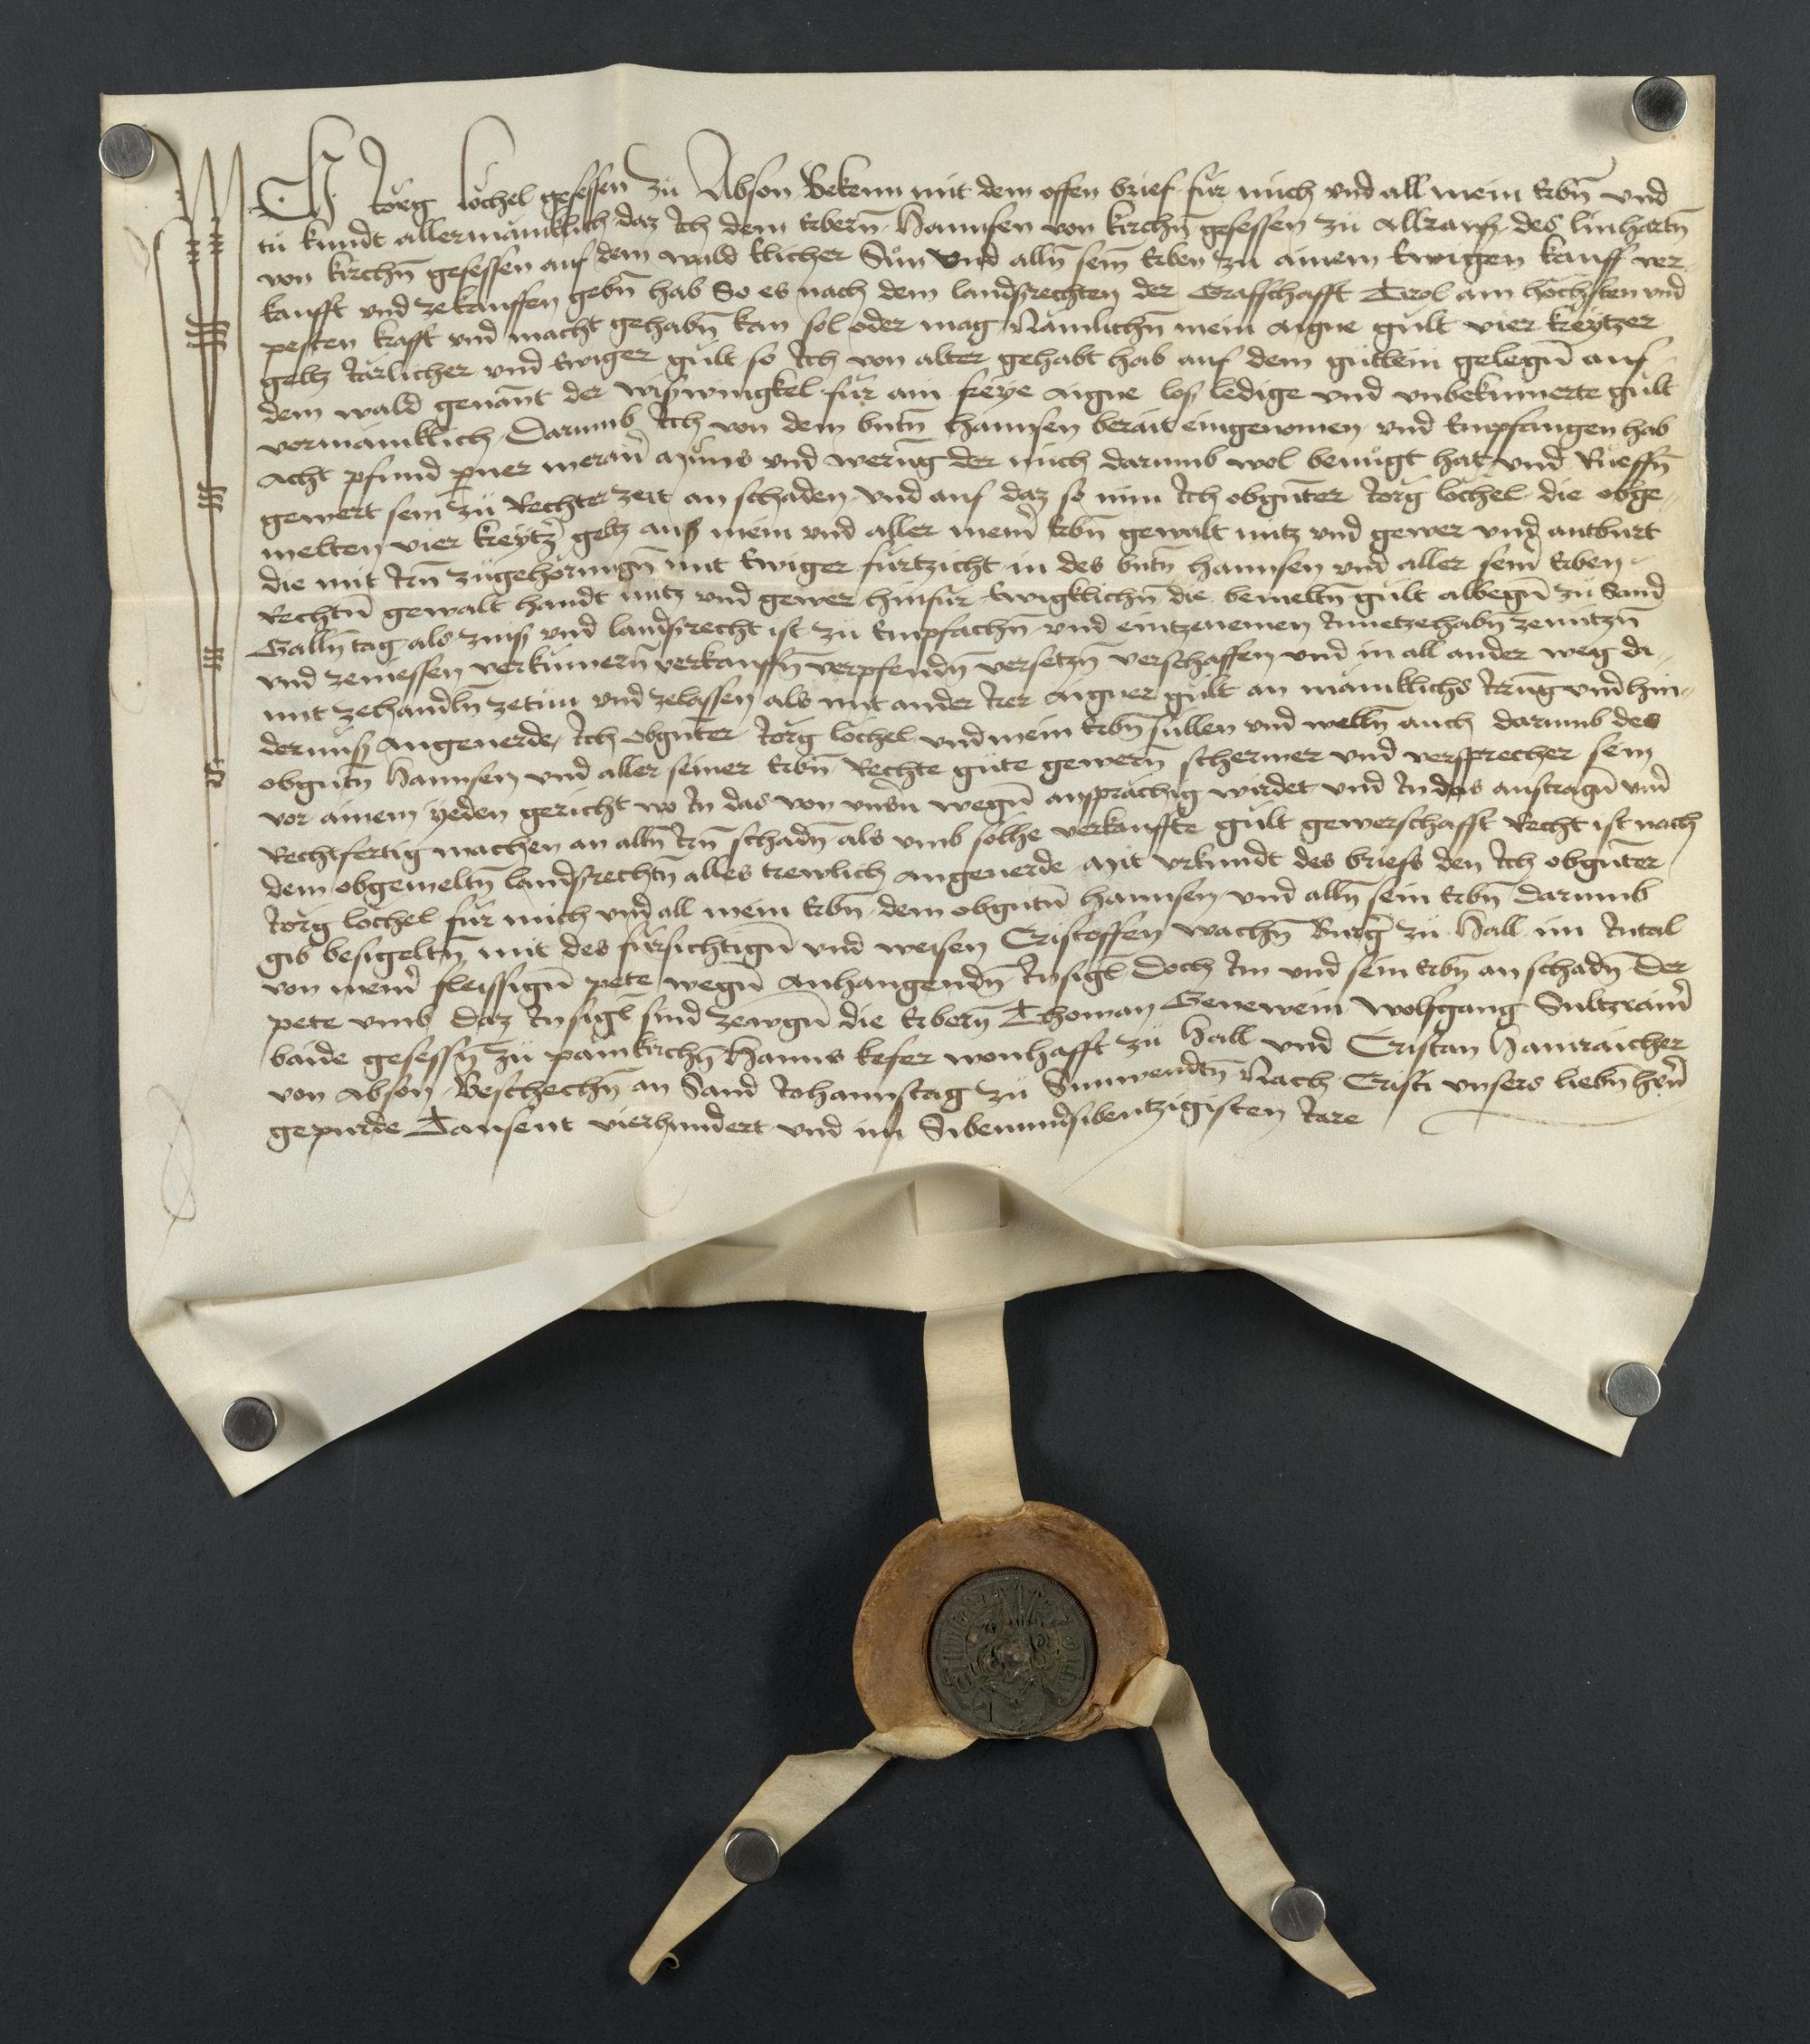 Ich Jörg löchel gesessen zu Abson Bekenn mit dem offen brief für mich vnd all mein Erbn̄ vnd
tu kundt allermäniklich daz Ich dem Erbern̄ Hannsen von kirchn̄ gesessen zu des linhartn̄
von kirchn̄ gesessen auf dem wald Elicher Sun vnd alln̄ sein̄ Erben zu ainem Ewigen kauff ver
kaufft vnd zekauffen gebn̄ hab So es nach dem landsrechten der Grafschafft Tirol am höchsten vnd
pesten krafft vnd macht gehabn̄ kan sol oder mag Nämlichn̄ mein aigne gült vier kreytzer
geltz Järlicher vnd Ewiger gült so Ich von alter gehabt hab auf dem gütlein gelegn̄ auf
dem wald genant der wiswingkel für ain freye aigne los ledige vnd vnbekumerte gült
vormäniklich, Darumb Ich von dem bntn̄ Hannsen berait eingenomen vnd Empfangen hab
Acht pfund perner meran̄ Müns vnd werūng der mich darumb wol benügt hat vnd
gewert sein zu Rechter zeit an schaden vnd auf daz so nim Ich obgnter Jörg löchel die obge
melten vier kreytz̄ geltz aus mein vnd aller mein̄ Erbn̄ gewalt nutz vnd gewer vnd antburt
die mit Irn̄ zugehörungn̄ mit Ewiger fürtzicht in des bntn̄ Hannsen vnd aller sein̄ Erben
Rechtn̄ gewalt handt nutz vnd gewer hinfür Ewigklichn̄ die bemeltn̄ gült albegn̄ zu Sand
Galln̄ tag als zins vnd landsrecht ist zu Empfachn̄ vnd eintzenemen Innetzehabn̄ zenutzn̄
vnd zeniessen verkumern̄ verkauffn̄ verpfendn̄ versetzn̄ verschaffen vnd in all ander weg da
mit zehandln̄ zetun vnd zelassen als mit ander Irer aigner gült an mäniklichs Irrūng vnd hin
dernüs Angeuerde, Ich obgnter Jörg löchel vnd mein Erbn̄ süllen vnd welln̄ auch darumb des
obgntn̄ Hannsen vnd aller seiner Erbn̄ Rechte gute gewern̄ schermer vnd versprecher sein
vor ainem yeden gericht wo In das von vnsn̄ wegn̄ ansprächig wirdet vnd In das austragn̄ vnd
Rechtfertig machen an alln̄ Irn̄ schadn̄ als vmb solhe verkauffte gült gewerschafft Recht ist nach
dem obgemeltn̄ landsrechtn̄ alles trewlich angeuerde Mit vrkundt des briefs den Ich obgnter
Jörg löchel für mich vnd all mein Erbn̄ dem obgntn̄ Hannsen vnd alln̄ sein Erbn̄ darumb
gib besigeltn̄ mit des fürsichtign̄ vnd weisen Cristoffen wachn̄ Burḡ zu Hall im Intal
von mein̄ fleissign̄ pete wegn̄ anhangendn̄ Insigl Doch Im vnd sein Erbn̄ an schadn̄ Der
pete vmb daz Insigl sind zewgn̄ die Erbern̄ Thoman Genewein wolfgang Sultzrain̄
baide gesessn̄ zu pämkirchn̄ Hanns kefer wonhafft zu Hall vnd Cristan Hauraicher
von Abson Beschechn̄ an Sand Johannstag zu Sunwendtn̄ Nach Cristi vnsers liebn̄ hern̄
gepurde Tausent vierhundert vnd im Sibenundsibentzigisten Jare